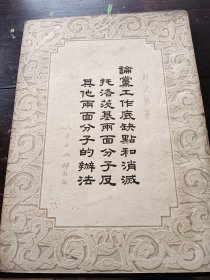 斯大林著
論黨工作底缺點和消滅
托洛茨基兩面分子及
其他兩面分子的辦法
人民出版社出版